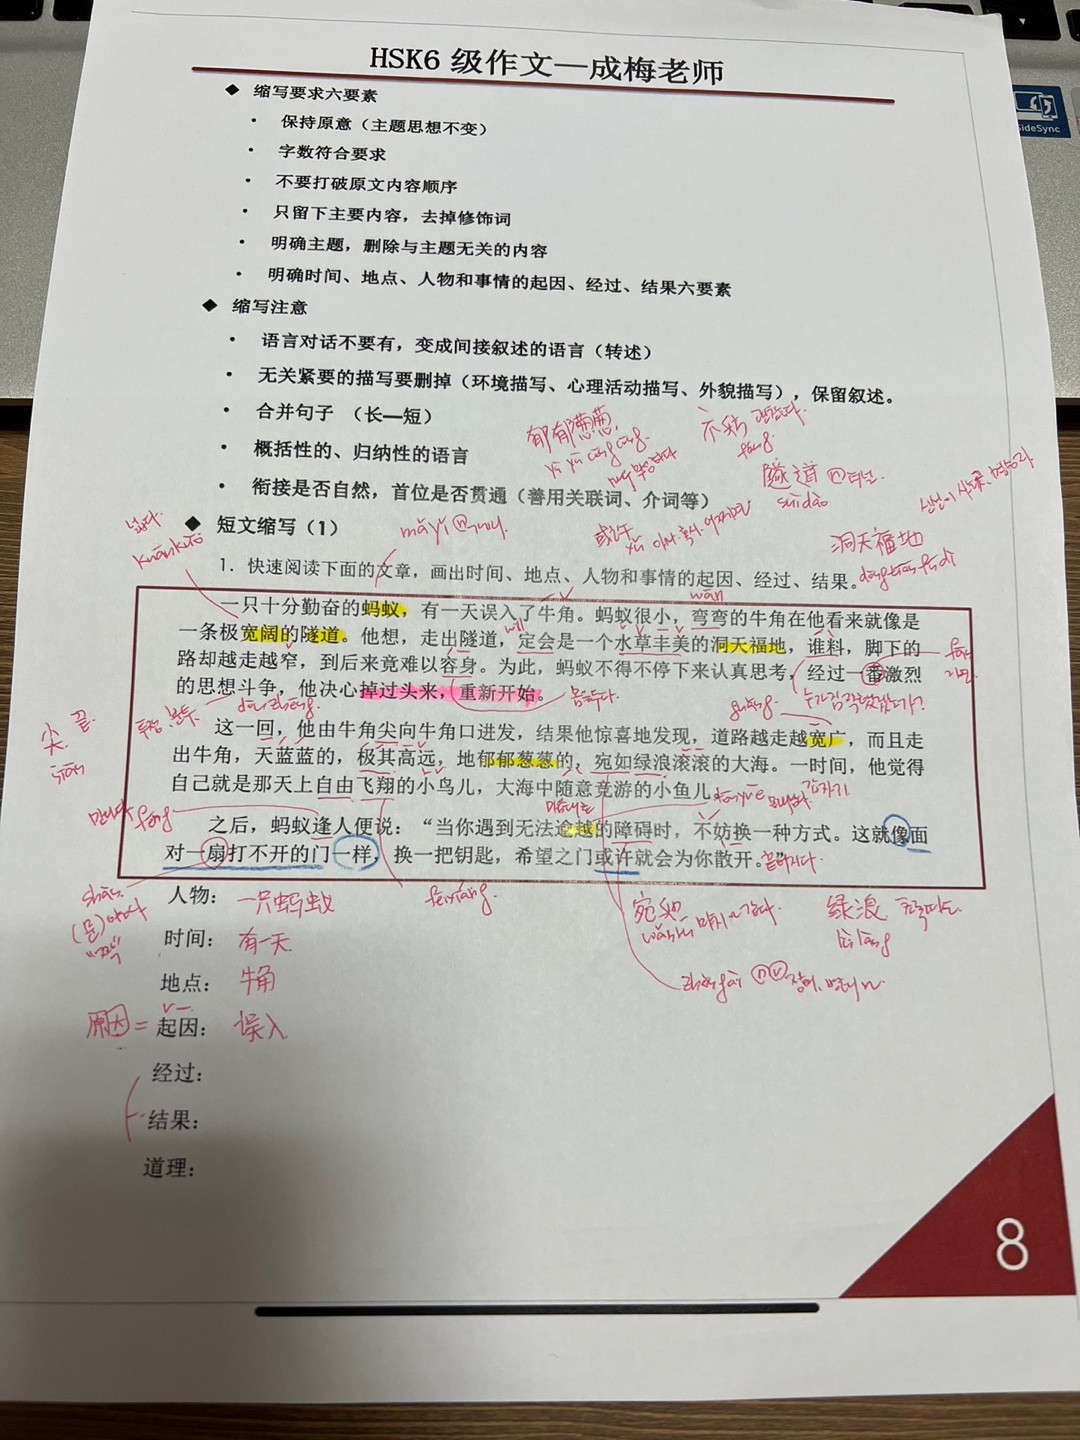 HSK6 级作文—成梅老师
SideSync
◆ 缩写要求六要素
• 保持原意（主题思想不变）
• 字数符合要求
• 不要打破原文内容顺序
• 只留下主要内容，去掉修饰词
• 明确主题，删除与主题无关的内容
• 明确时间、地点、人物和事情的起因、经过、结果六要素
◆ 缩写注意
• 语言对话不要有，变成间接叙述的语言（转述）
• 无关紧要的描写要删掉（环境描写、心理活动描写、外貌描写），保留叙述。
• 合并句子 （长—短）
• 概括性的、归纳性的语言
郁郁葱葱
yù yù cōng cōng
• 衔接是否自然，首位是否贯通（善用关联词、介词等）
隧道
suìdào
◆ 短文缩写（1）
mǎyǐ
或许
洞天福地
넓다
kuānkuò
1. 快速阅读下面的文章，画出时间、地点、人物和事情的起因、经过、结果。
wān
一只十分勤奋的蚂蚁，有一天误入了牛角。蚂蚁很小，弯弯的牛角在他看来就像是
一条极宽阔的隧道。他想，走出隧道，定会是一个水草丰美的洞天福地，谁料，脚下的
will
路却越走越窄，到后来竟难以容身。为此，蚂蚁不得不停下来认真思考，经过一番激烈
的思想斗争，他决心掉过头来，重新开始。
尖 끝
jiān
这一回，他由牛角尖向牛角口进发，结果他惊喜地发现，道路越走越宽广，而且走
出牛角，天蓝蓝的，极其高远，地郁郁葱葱的，宛如绿浪滚滚的大海。一时间，他觉得
自己就是那天上自由飞翔的小鸟儿，大海中随意竞游的小鱼儿
féng
之后，蚂蚁逢人便说：“当你遇到无法逾越的障碍时，不妨换一种方式。这就像面
对一扇打不开的门一样，换一把钥匙，希望之门或许就会为你敞开。”
shàn
人物： 一只蚂蚁
fēixiáng
宛如
绿浪
lǜ làng
时间： 有一天
地点： 牛角
原因 = 起因： 误入
经过：
结果：
道理：
8